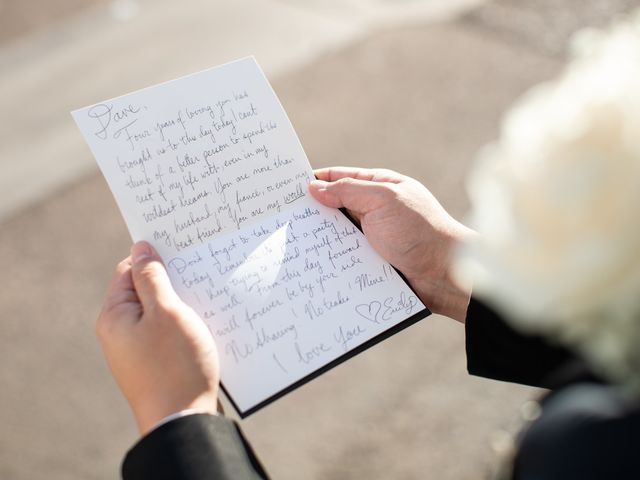 Dave,
Four years of loving you has
brought us to this day today! I can't
think of a better person to spend the
rest of my life with – even in my
wildest dreams. You are more than
my husband, my fiance, or even my
best friend. You are my world.
Don't forget to take deep breaths
today. Remember is just a party!
I keep trying to remind myself of that
as well. From this day forward
will forever be by your side
No sharing! No takes! Mine!!
I love you ♡ Emily